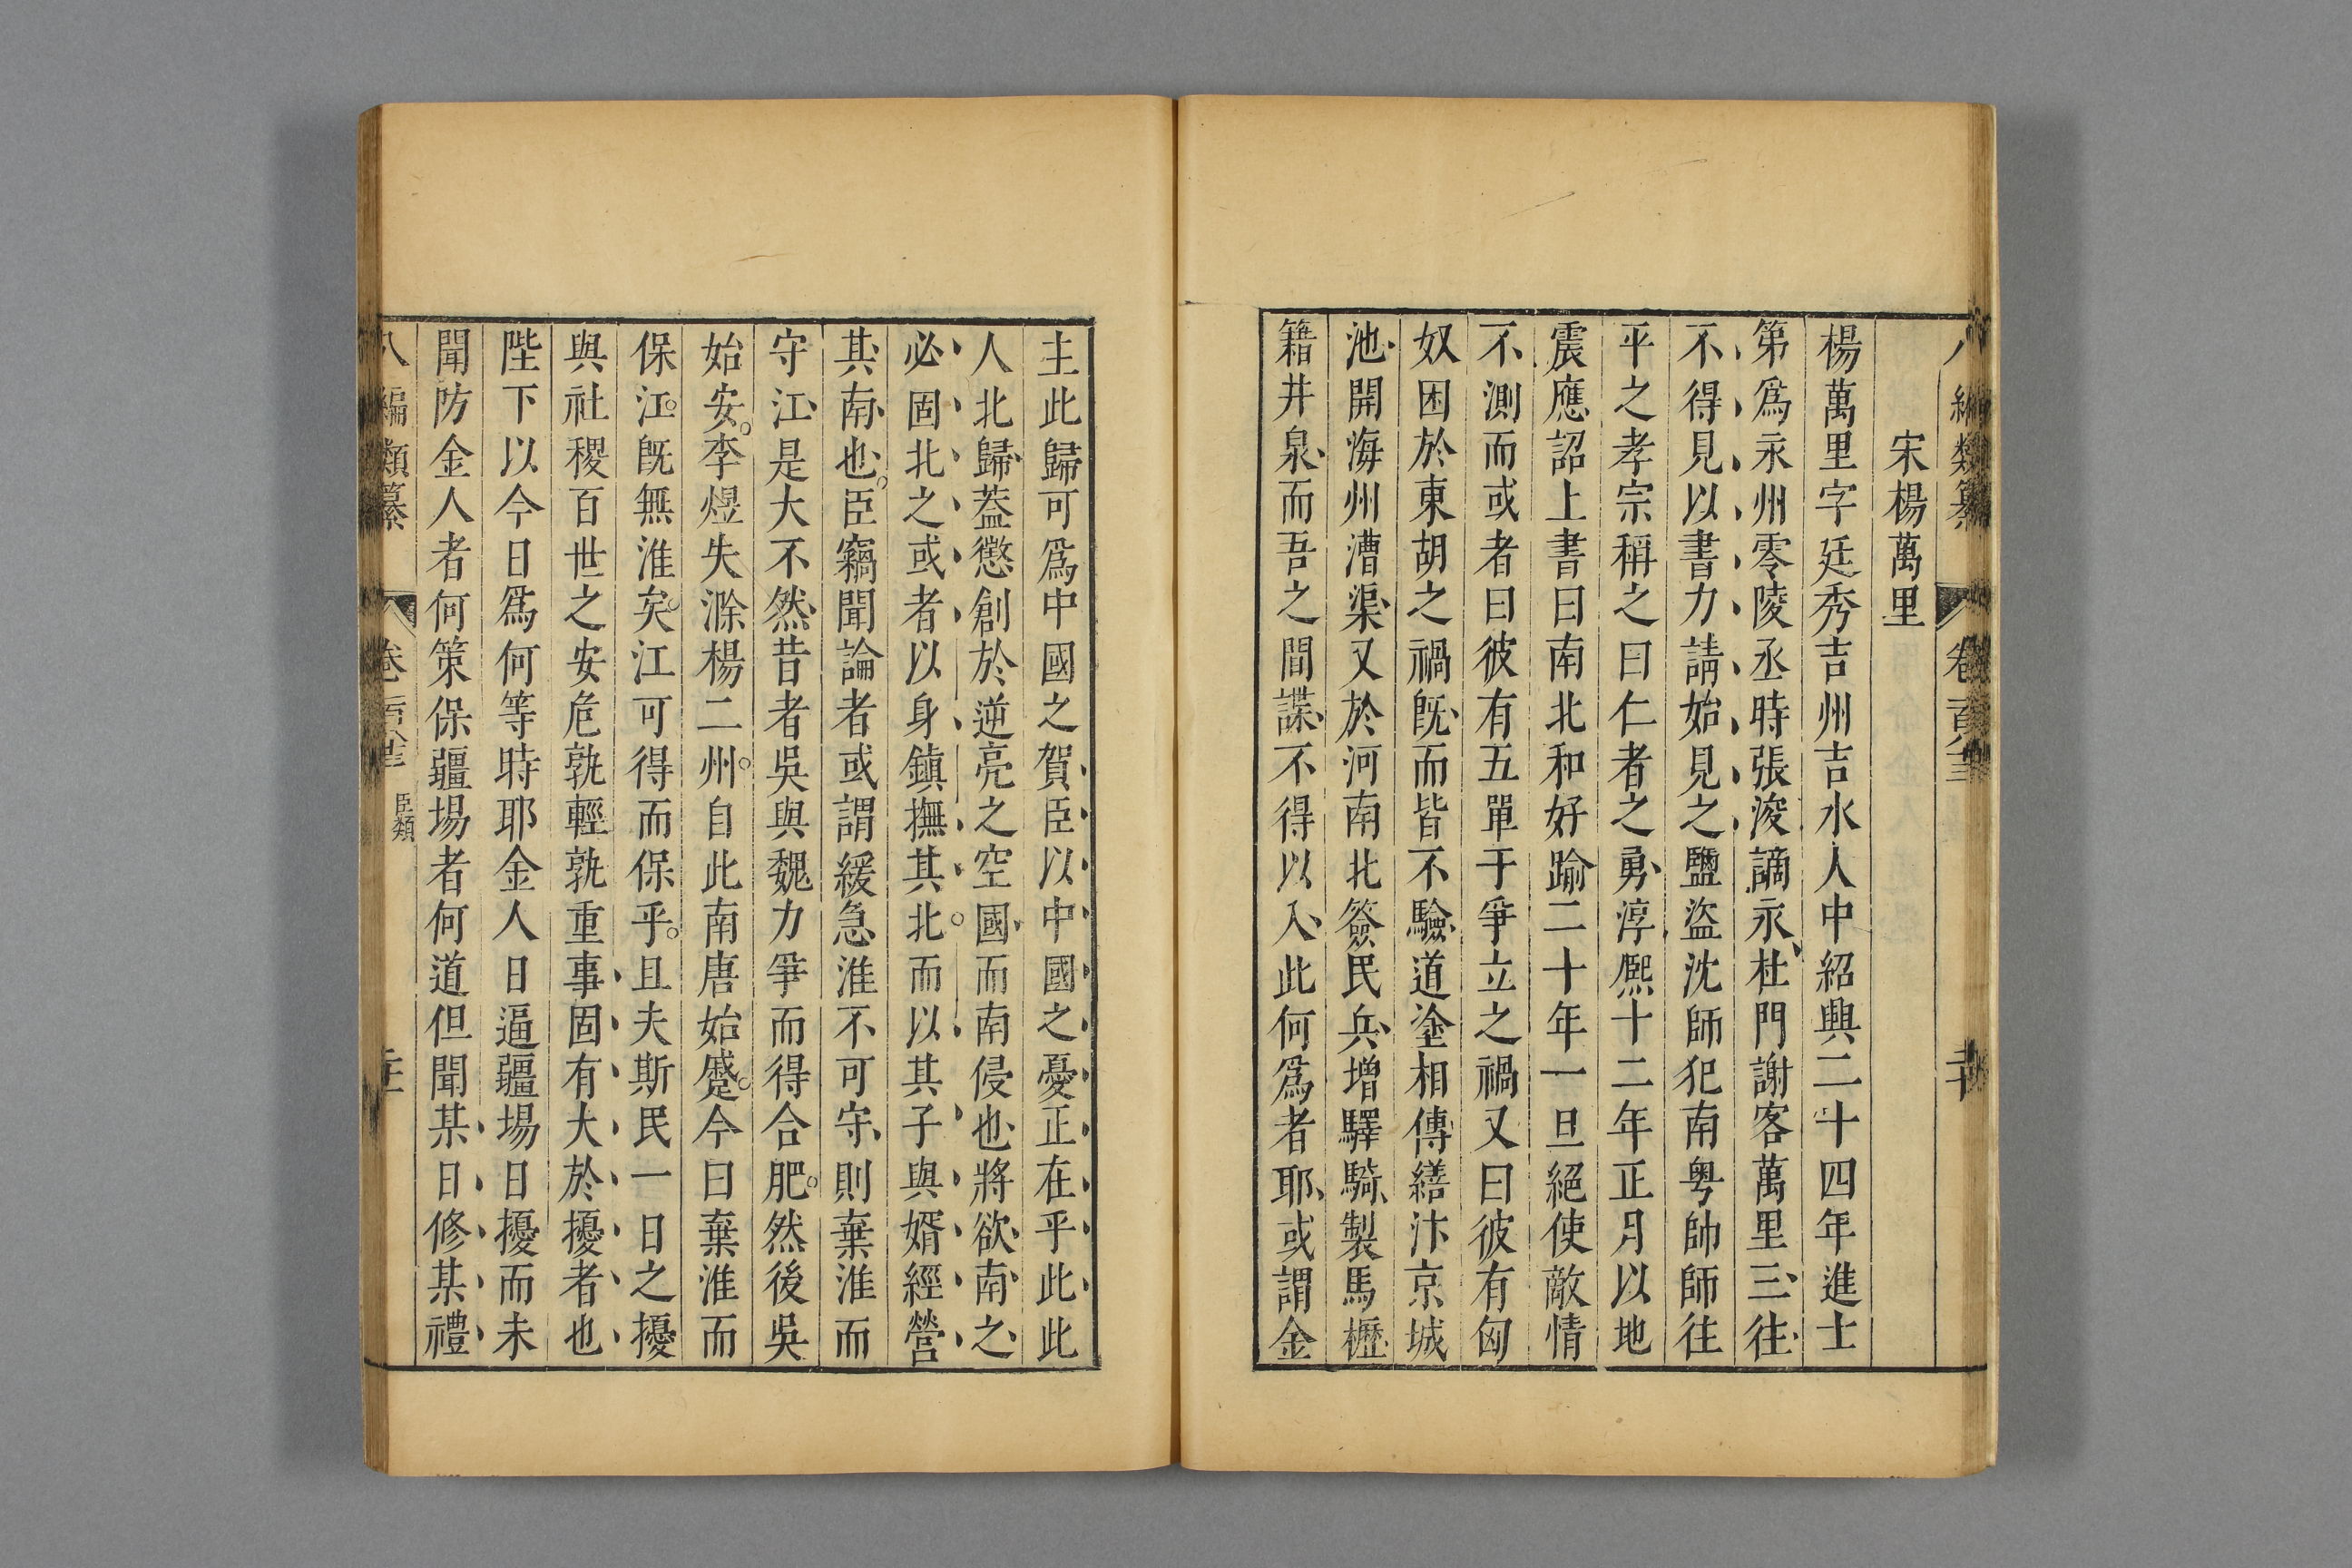 宋楊萬里
楊萬里字廷秀吉州吉水人中紹興二十四年進士
第爲永州零陵丞時張浚謫永杜門謝客萬里三往
不得見以書力請始見之鹽盜沈師犯南粤帥師往
平之孝宗稱之曰仁者之勇淳熈十二年正月以地
震應詔上書曰南北和好踰二十年一旦絕使敵情
不測而或者曰彼有五單于爭立之禍又曰彼有匈
奴困於東胡之禍旣而皆不驗道塗相傳繕汴京城
池開海州漕渠又於河南北簽民兵增驛騎製馬櫪
籍井泉而吾之間諜不得以入此何爲者耶或謂金
主此歸可爲中國之賀臣以中國之憂正在乎此此
人北歸葢懲創於逆亮之空國而南侵也將欲南之
必固北之或者以身鎮撫其北而以其子與婿經營
其南也臣竊聞論者或謂緩急淮不可守則棄淮而
守江是大不然昔者吳與魏力爭而得合肥然後吳
始安李煜失滁楊二州自此南唐始蹙今曰棄淮而
保江旣無淮矣江可得而保乎且夫斯民一日之擾
與社稷百世之安危孰輕孰重事固有大於擾者也
陛下以今日爲何等時耶金人日逼疆場日擾而未
聞防金人者何策保疆場者何道但聞某日修某禮
八編類纂
卷
臣類